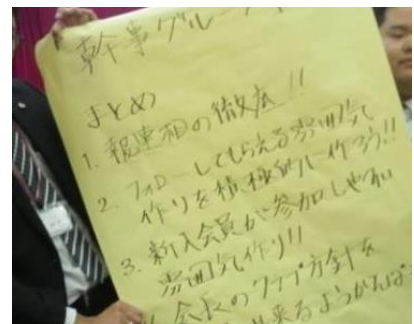 幹事グルー
まとめ
1. 報連相の徹底!!
2. フォローしてもらえる雰囲気
作りを積極的に作ろう!!
3. 新入会員が参加しやすい
雰囲気作り!!
会長のクラブ方針を
出来るようがんば